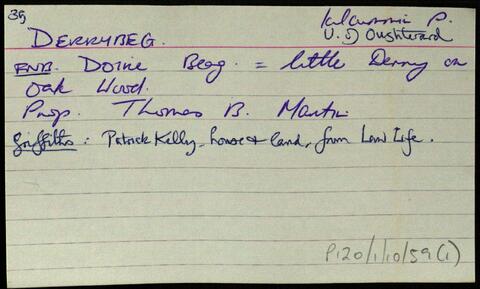 35
Kilcummin P.
U.D Oughterard
DERRYBEG.
FNB. Doire Beag. = little Derry or
Oak Wood.
Prop. Thomas B. Martin
Griffiths: Patrick Kelly, house & land, from Law Life.
P120/1/10/59(1)